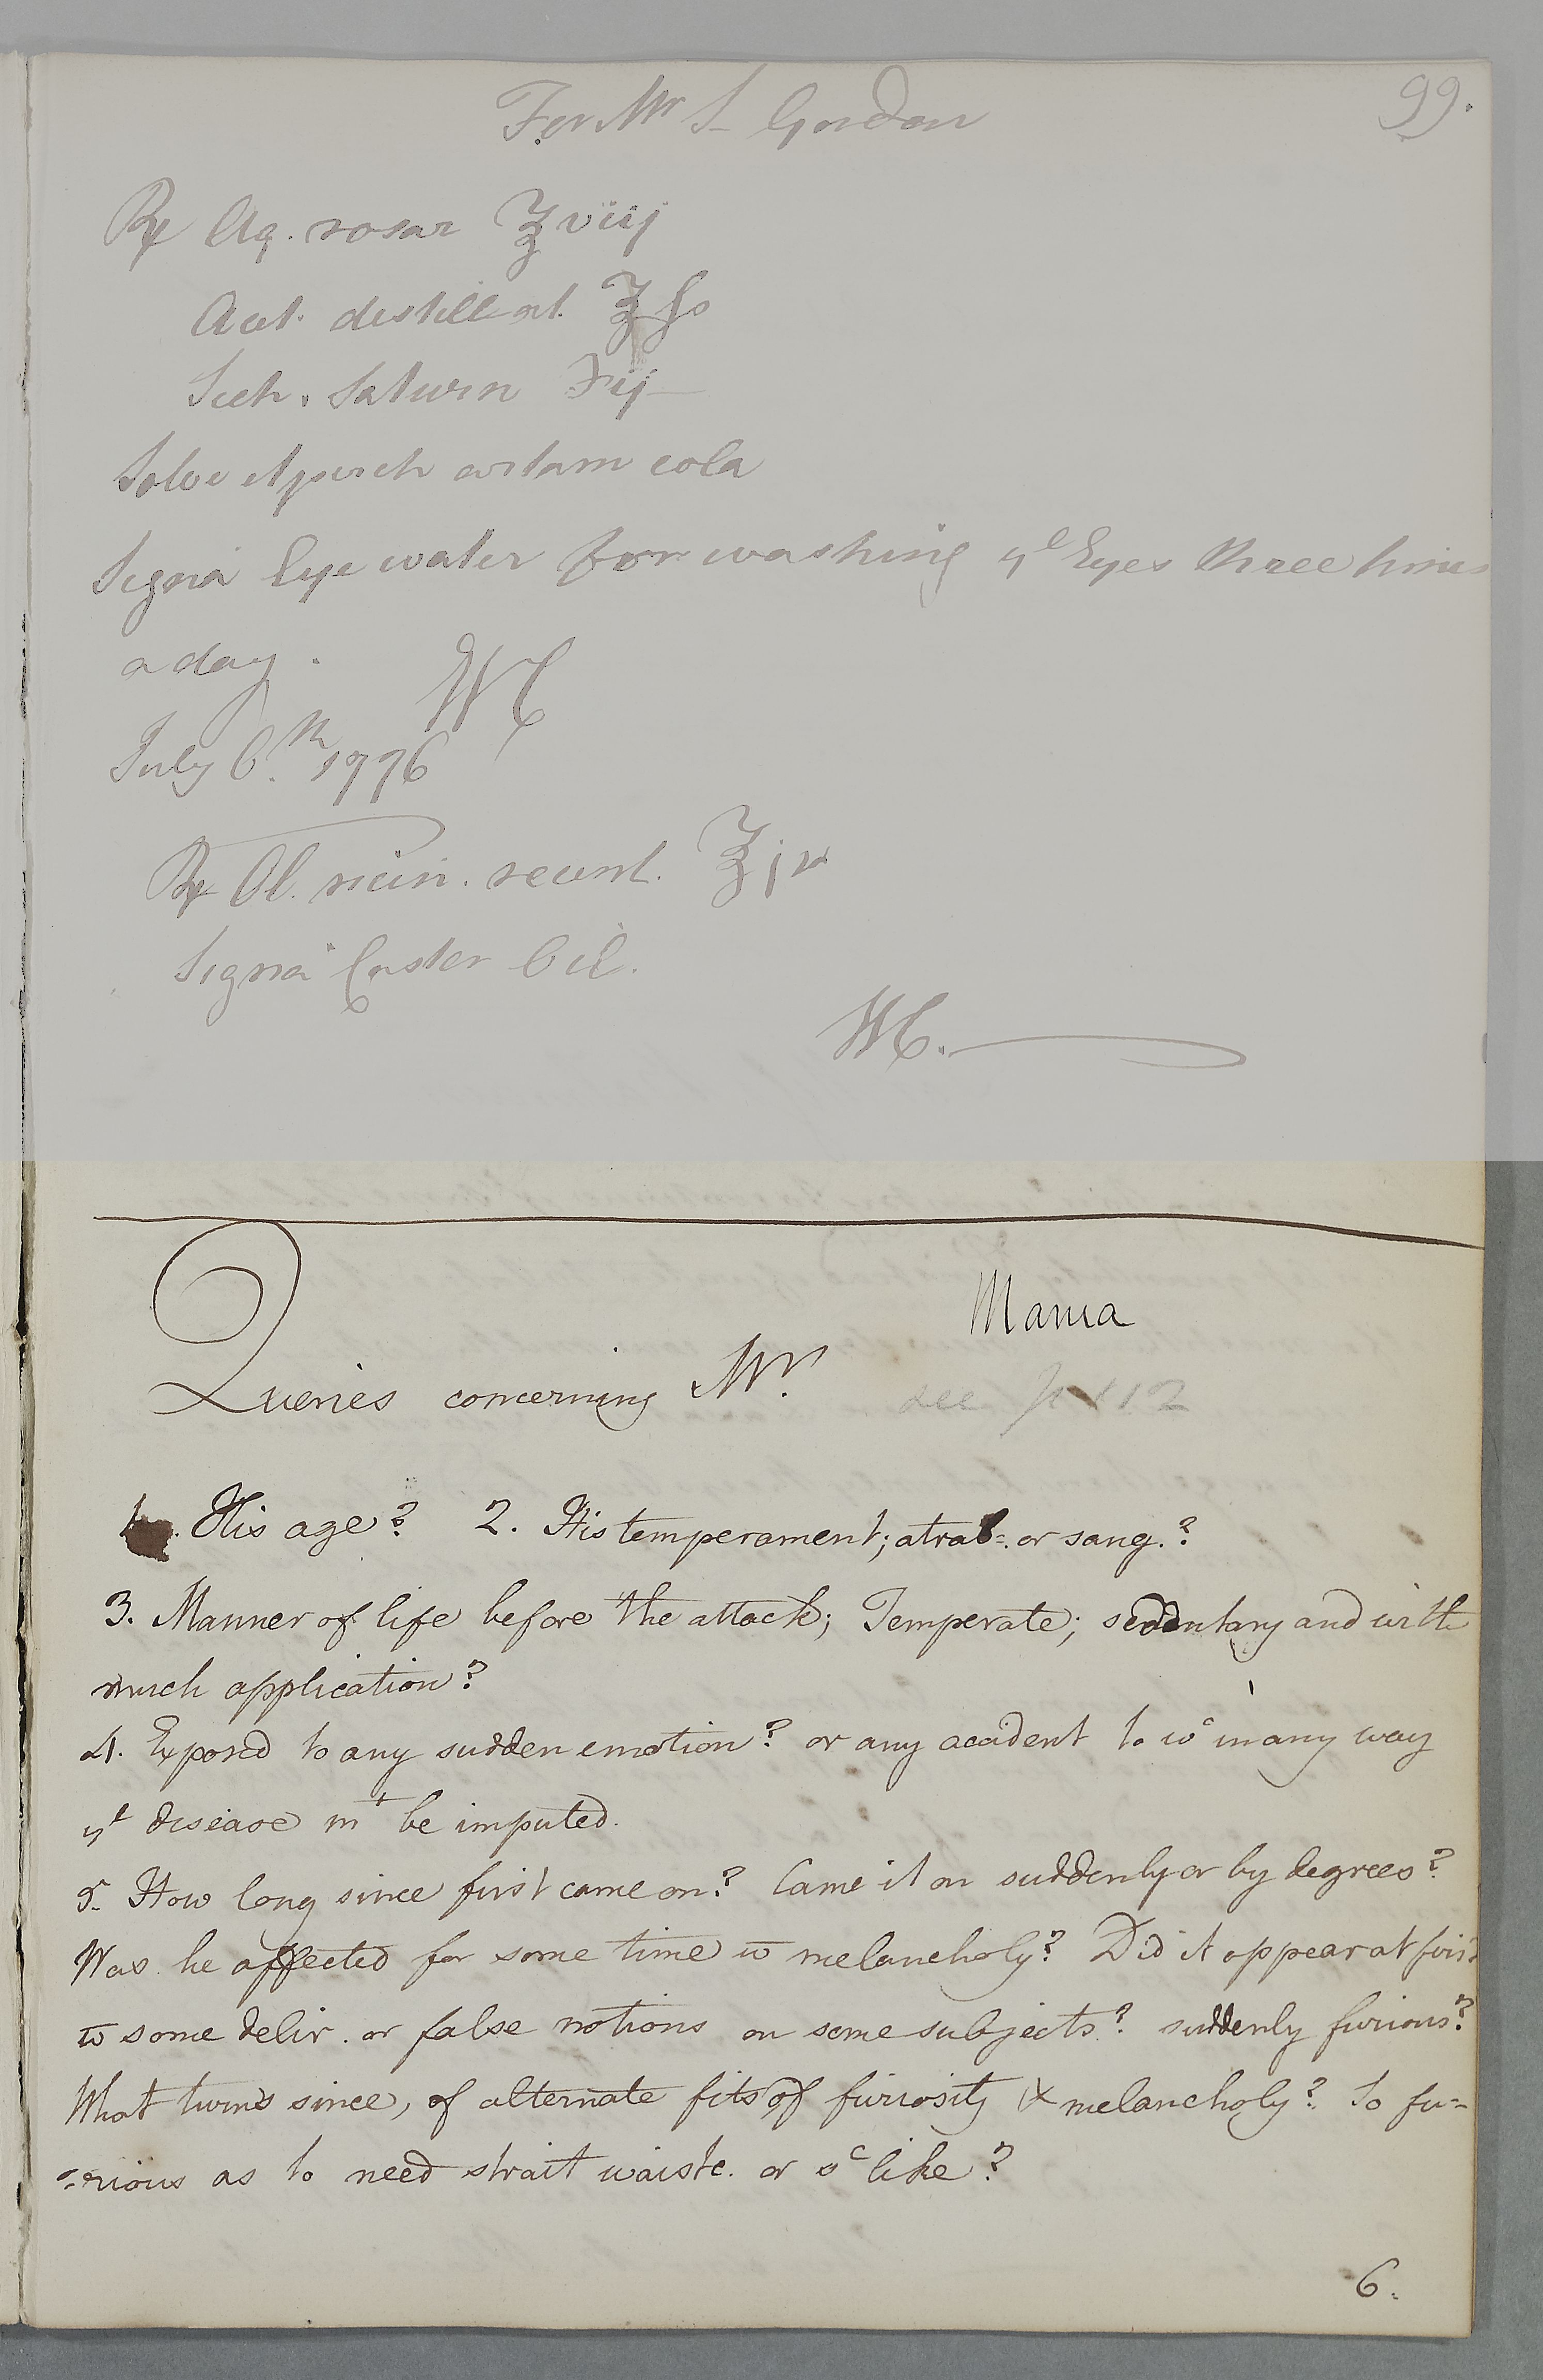 For Mr S Gordon
99.
Rx Aq. rosar ℥ viij
Acet. distillat. ℥ ſs
Sach. Saturn ℈ij
Solve et per chartam cola
Signa Eye water for washing ye Eyes three times
a day. WC
July 6.th 1776
Rx Ol. ricin. recent. ℥ jv
Signa Castor Oil.
WC.
Mania
Queries concerning Mr.
see 112
1. His age? 2. His temperament; atrab=. or sang.?
3. Manner of life before the attack; Temperate; sedentary and with
much application?
4. Expos'd to any sudden emotion? or any accident to wc in any way
ye disease mt be imputed.
5. How long since first came on? Came it on suddenly or by degrees?
Was he affected for some time w̄ melancholy? Did it appear at first
w̄ some delir. or false notions on some subjects? suddenly furious?
What turns since, of alternate fits of furiosity & melancholy? So fu=
=rious as to need strait waistc. or sc like?
6.